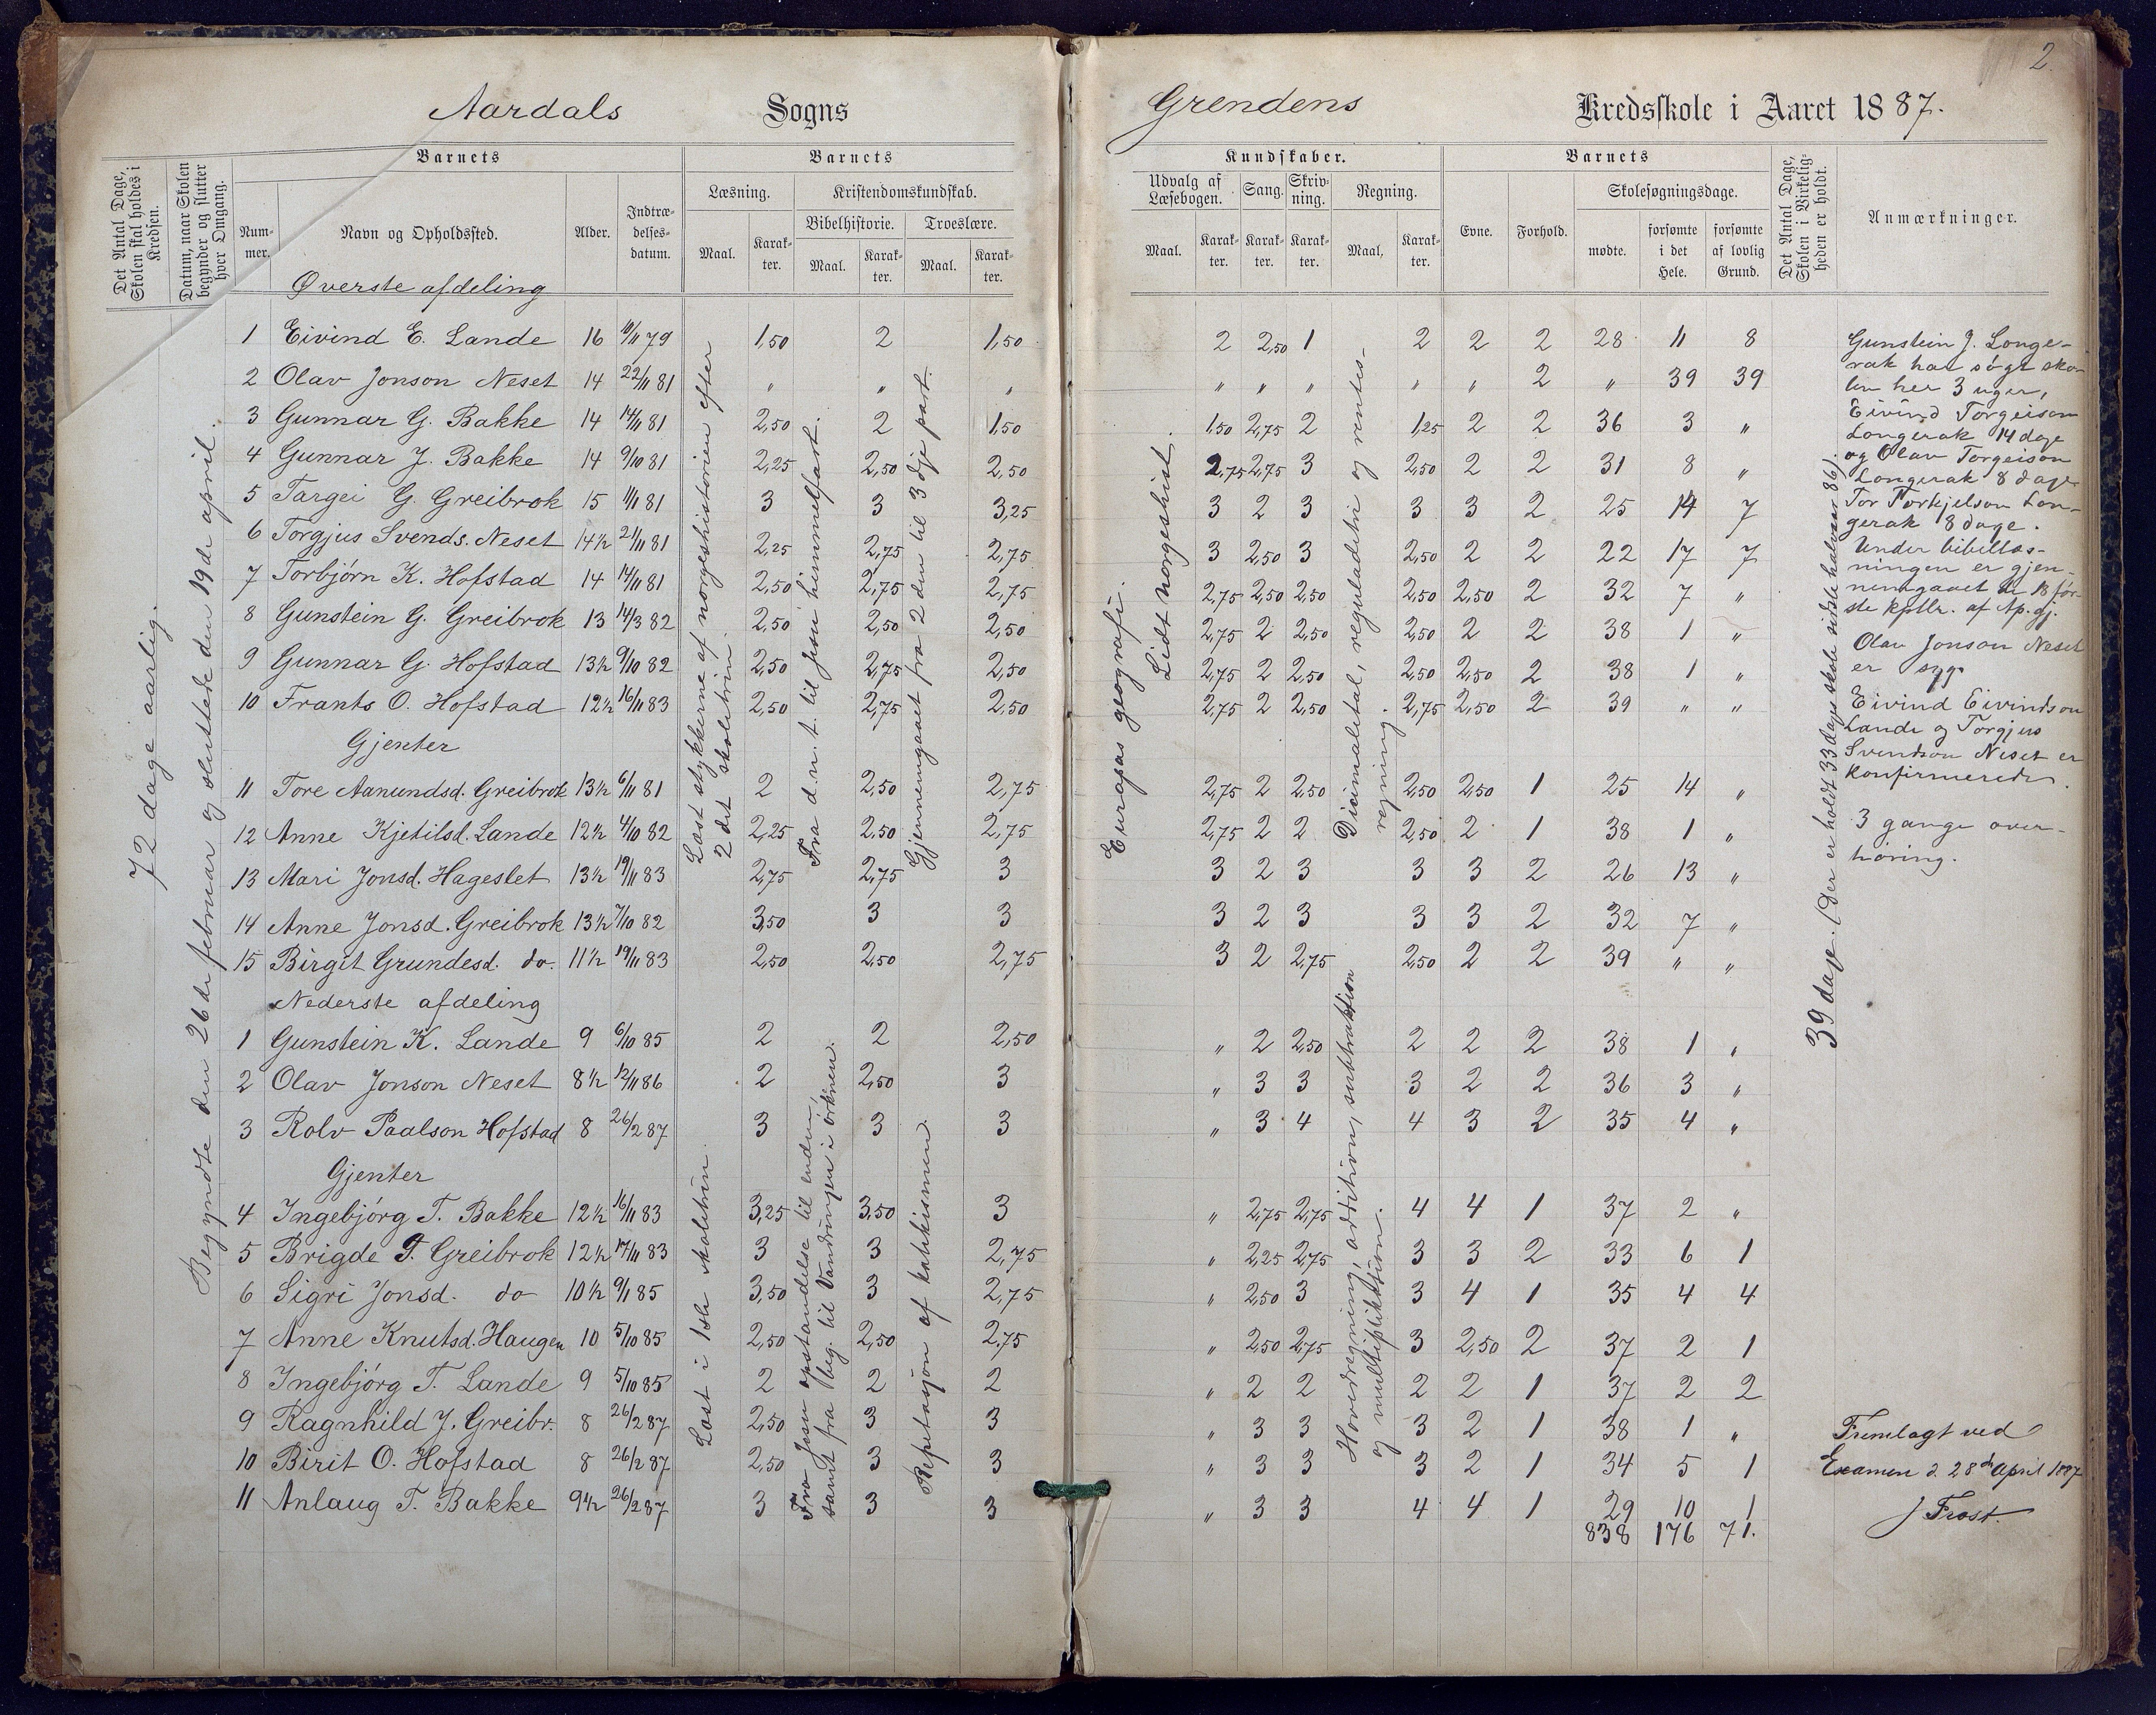 2.
Aardals Sogns
Grendens Kredsskole i Aaret 1887.
Det Antal Dage, Skolen skal holdes i Kredsen.
Datum, naar Skolen begynder og slutter hver Omgang.
Barnets
Nummer.
Navn og Opholdssted.
Alder.
Indtrædelsesdatum.
Barnets
Læsning.
Maal.
Karakter.
Kristendomskundskab.
Bibelhistorie.
Maal.
Karakter.
Troeslære.
Maal.
Karakter.
Kundskaber.
Udvalg af Læsebogen.
Maal.
Karakter.
Sang.
Karakter.
Skrivning.
Karakter.
Regning.
Maal.
Karakter.
Barnets
Evne.
Forhold.
Skolesøgningsdage.
mødte.
forsømte i det Hele.
forsømte af lovlig Grund.
Det Antal Dage, Skolen i Virkeligheden er holdt.
Anmærkninger.
72 dage aarlig.
Begyndte den 26de februar og sluttede den 19de april.
Øverste afdeling
1 Eivind E. Lande 16 10/11 79 1,50 2 1,50 2 2,50 1 2 2 2 28 11 8
2 Olav Jonson Neset 14 22/11 81 " " " " " " " " 2 " 39 39
3 Gunnar G. Bakke 14 14/11 81 2,50 2 1,50 1,50 2,75 2 1,25 2 2 36 3 "
4 Gunnar J. Bakke 14 9/10 81 2,25 2,50 2,50 2,75 2,75 3 2,50 2 2 31 8 "
5 Targei G. Greibrok 15 11/11 81 3 3 3,25 3 2 3 3 3 2 25 14 7
6 Torgjus Svends. Neset 14½ 21/11 81 2,25 2,75 2,75 3 2,50 3 2,50 2 2 22 17 7
7 Torbjørn K. Hofstad 14 14/11 81 2,50 2,75 2,75 2,75 2,50 2,50 2,50 2,50 2 32 7 "
8 Gunstein G. Greibrok 13 14/3 82 2,50 2,50 2,50 2,75 2 2,50 2,50 2 2 38 1 "
9 Gunnar G. Hofstad 13½ 9/10 82 2,50 2,75 2,50 2,75 2 2,50 2,50 2,50 2 38 1 "
10 Frants O. Hofstad 12½ 16/11 83 2,50 2,75 2,50 2,75 2 2,50 2,75 2,50 2 39 " "
Gjenter
11 Tore Aanundsd. Greibrok 13½ 6/11 81 2 2,50 2,75 2,75 2 2,50 2,50 2,50 1 25 14 "
12 Anne Kjetilsd. Lande 12½ 4/10 82 2,25 2,50 2,75 2,75 2 2 2,50 2 1 38 1 "
13 Mari Jonsd. Hageslet 13½ 19/11 83 2,75 2,75 3 3 2 3 3 3 2 26 13 "
14 Anne Jonsd. Greibrok 13½ 7/10 82 3,50 3 3 3 2 3 3 3 2 32 7 "
15 Birgit Grundesd. do. 11½ 19/11 83 2,50 2,50 2,75 3 2 2,75 2,50 2 2 39 " "
Læst stykkerne af norgeshistorien efter
2det skoletrin.
Fra d. n. t. til Jesu himmelfart.
Gjennemgaaet fra 2den til 3dje part.
Europas geografi.
Lidt norgeshist.
Decimaletal, reguladetri og rentes-
regning.
Nederste afdeling
1 Gunstein K. Lande 9 6/10 85 2 2 2,50 " 2 2,50 2 2 2 38 1 "
2 Olav Jonson Neset 8½ 12/11 86 2 2,50 3 " 3 3 3 2 2 36 3 "
3 Rolv Paalson Hofstad 8 26/2 87 3 3 3 " 3 4 4 3 2 35 4 "
Gjenter
4 Ingebjørg T. Bakke 12½ 16/11 83 3,25 3,50 3 " 2,75 2,75 4 4 1 37 2 "
5 Brigde T. Greibrok 12½ 17/11 83 3 3 2,75 " 2,25 2,75 3 3 2 33 6 1
6 Sigri Jonsd. do 10½ 9/11 85 3,50 3 2,75 " 2,50 3 3 4 1 35 4 4
7 Anne Knutsd. Haugen 10 5/10 85 2,50 2,50 2,75 " 2,50 2,75 3 2,50 2 37 2 1
8 Ingebjørg T. Lande 9 5/10 85 2 2 2 " 2 2 2 2 1 37 2 2
9 Ragnhild J. Greibr. 8 26/2 87 2,50 3 3 " 3 3 3 2 1 38 1 "
10 Birit O. Hofstad 8 26/2 87 2,50 3 3 " 3 3 3 2 1 34 5 1
11 Anlaug T. Bakke 9½ 26/2 87 3 3 3 " 3 3 4 4 1 29 10 1
838 176 71.
Læst i 1ste skoletrin
Fra Jesu opstandelse til enden,
samt fra beg. til Vandringen i ørkenen.
Repetasjon af katekismen.
Hovedregning, addition, subtraktion
og multiplikation.
39 dage. (Der er holdt 33 dags skole sidste halvaar 86).
Gunstein J. Longe-
rak har søgt sko-
len her 3 uger,
Eivind Torgeison
Longerak 14 dage
og Olav Torgeison
Longerak 8 dage
Tor Torkjelson Lon-
gerak 8 dage.
Under bibellæs-
ningen er gjen-
nemgaaet de 18 før-
ste kptlr. af Ap. gj.
Olav Jonson Neset
er syg.
Eivind Eivindson
Lande og Torgjus
Svendson Neset er
konfirmerede.
3 gange over-
høring.
Fremlagt ved
Examen d. 28de April 1887
J Frost.